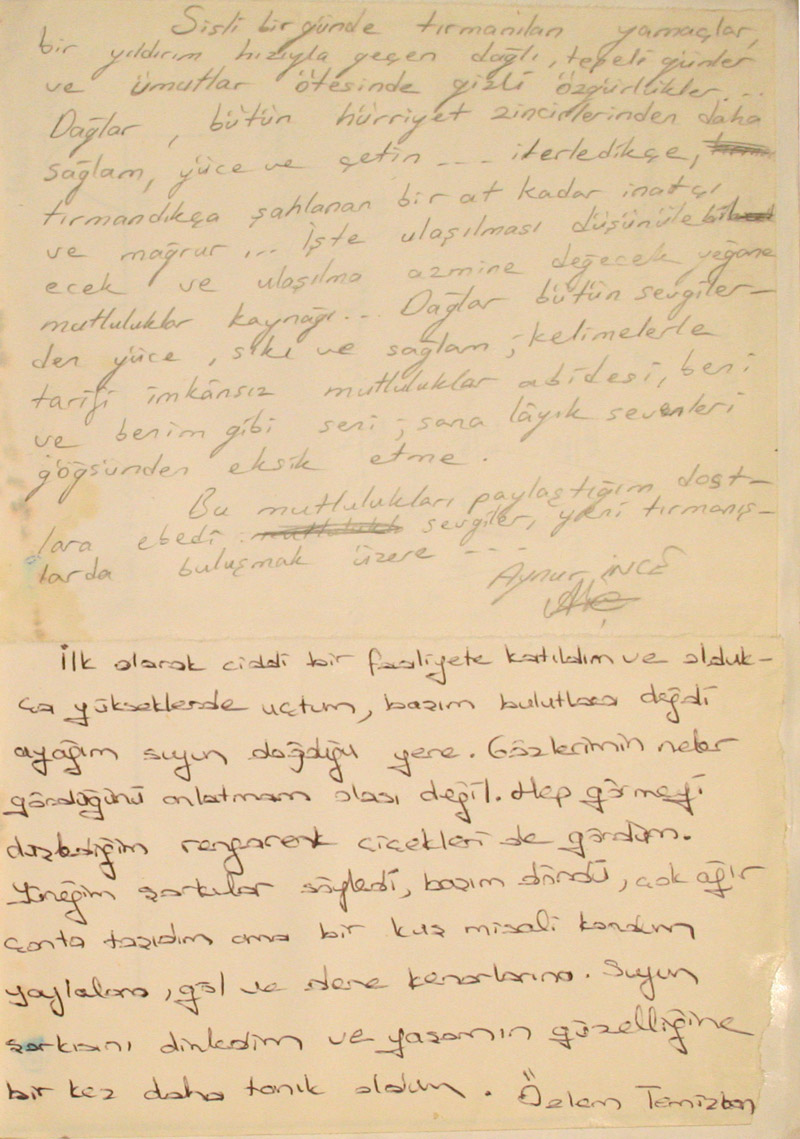 Sisli bir günde tırmanılan yamaçlar,
bir yıldırım hızıyla geçen dağlı, tepeli günler
ve ümutlar ötesinde gizli özgürlükler...
Dağlar, bütün hürriyet zincirlerinden daha
sağlam, yüce ve çetin --- ilerledikçe,
tırmandıkça şahlanan bir at kadar inatçı
ve mağrur... İşte ulaşılması düşünülebil
ecek ve ulaşılma azmine değecek yegane
mutluluklar kaynağı... Dağlar bütün sevgiler-
den yüce, sıkı ve sağlam; kelimelerle
tarifi imkânsız mutluluklar abidesi, beni
ve benim gibi seni; sana lâyık sevenleri
göğsünden eksik etme.
Bu mutlulukları paylaştığım dost-
lara ebedî sevgiler, yeni tırmanış-
larda buluşmak üzere ---
Aynur İNCE
İlk olarak ciddi bir faaliyete katıldım ve olduk-
ça yükseklerde uçtum, başım bulutlara değdi
ayağım suyun doğduğu yere. Gözlerimin neler
gördüğünü anlatmam olası değil. Hep görmeyi
düşlediğim rengarenk çiçekleri de gördüm.
Yüreğim şarkılar söyledi, başım döndü, çok ağır
çanta taşıdım ama bir kuş misali kondum
yaylalara, göl ve dere kenarlarına. Suyun
şarkısını dinledim ve yaşamın güzelliğine
bir kez daha tanık oldum. Özlem